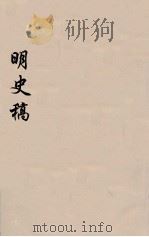 明史稿
www.mtoou.info